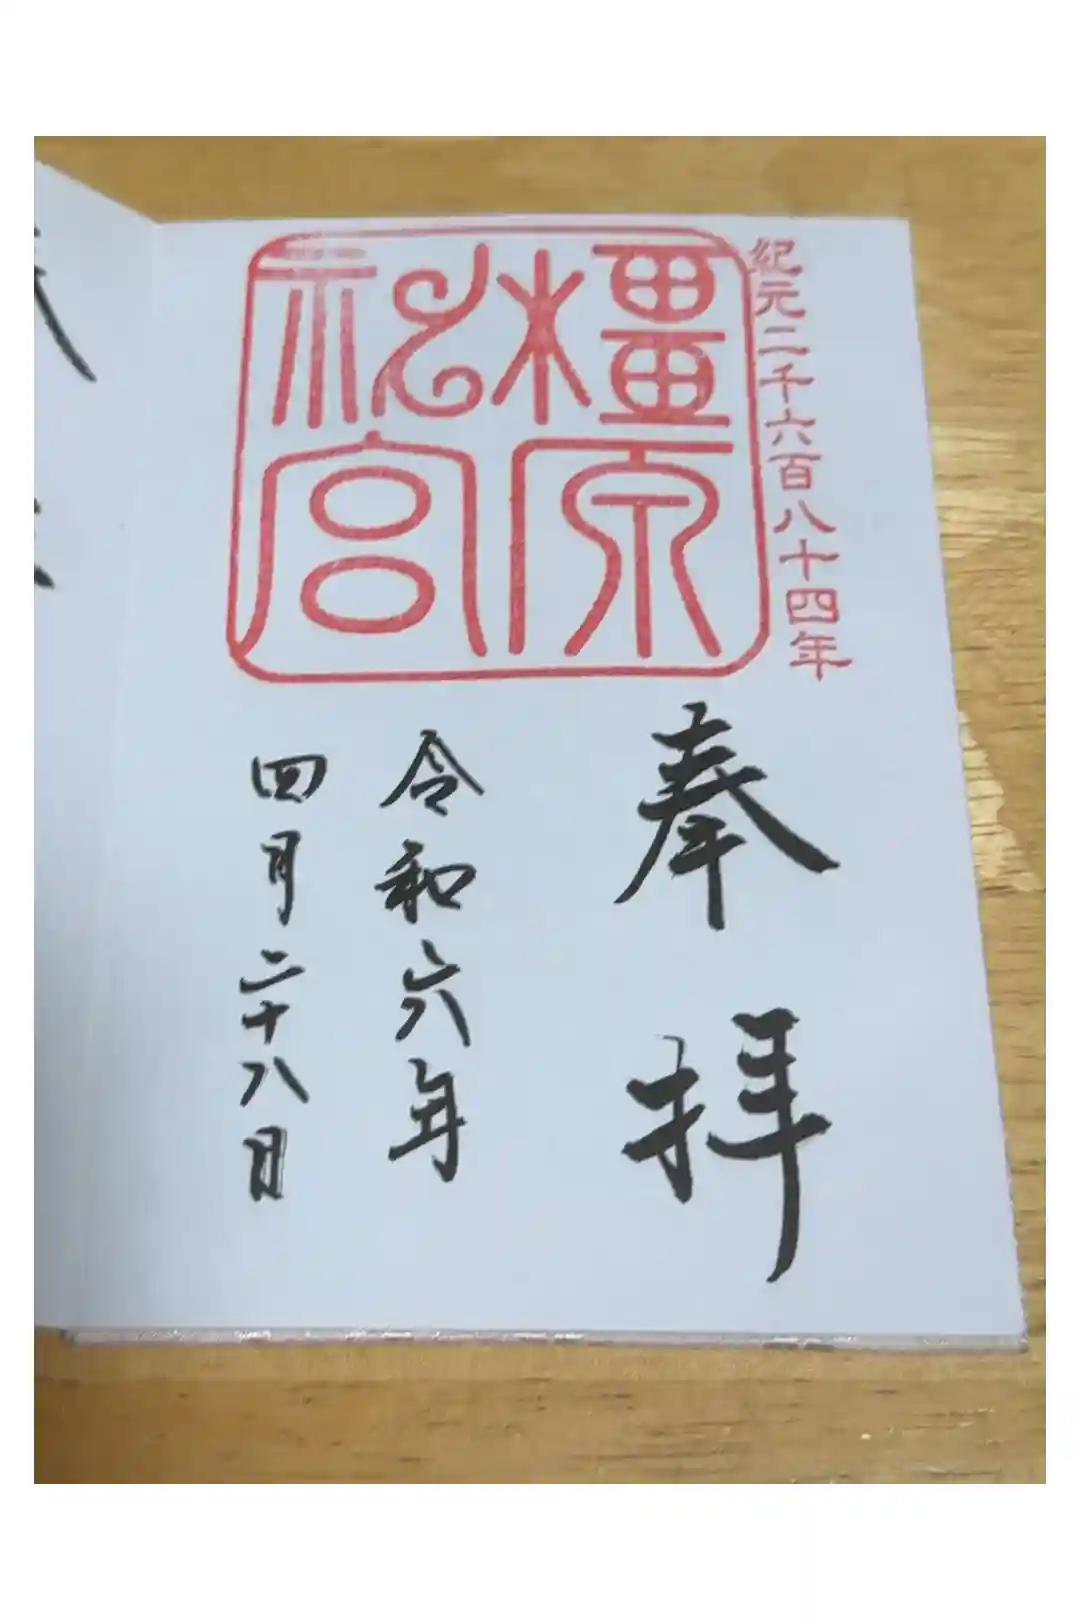 紀元二千六百八十四年
橿原
神宮
奉拝
令和六年
四月二十八日